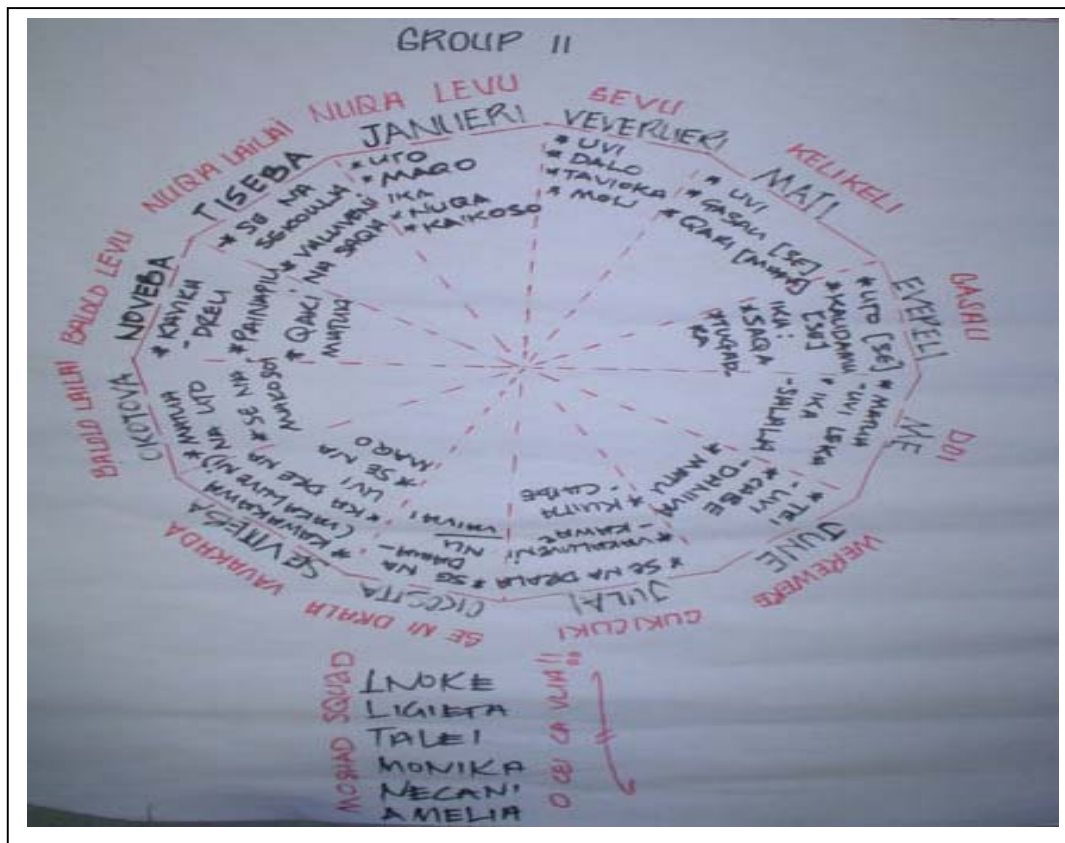 GROUP 11
NUQA LEVU
JANUERI
* UTO
* MAQO
IKA
* NUQA
* KAIKOSO
SEVU
VEVERUERI
* UVI
* DALO
* TAVIOKA
* MOLI
KELIKELI
MATI
* UVI
* GASAU [SE]
* QARI
GASAU
EVERELI
* UTO [SE]
* KAUDAMU
[SE]
IKA:
* SAQA
* TUGAD-
RA
DOI
ME
* MATUA
- UVI LEKA
* IKA
- SALALA
WEREWERE
JUNE
* TEI
- UVI
* CABE
- DANIVA
* MATU
CUKICUKI
JULAI
* SE NA DRALA
* VAKALUVENI
- KAWAE
* KUITA
SE NI DRALA
OKOSITA
* SE NA
DAMA-
NU
VAIVAI
VAVAKADA
SEVITEBA
* KAWAKAWA
(VAKALUVENI)
* KA DRE NA
UVI
* SE NA
MAQO
BALOLO LAILAI
OKOTOVA
* MATUA
NA UTO
* SE NA
MAKOSOI
BALOLO LEVU
NOVEBA
* KAVIKA
- DREU
* PAINAPIU
* QARI
MATUA
NUQA LAILAI
TISEBA
* SE NA
SEKOULA
* VALUVENI
NA SAQA
MOSIAD SQUAD
INOKE
LIGIETA
TALEI
MONIKA
NECANI
AMELIA
O CEI CA VUA!!